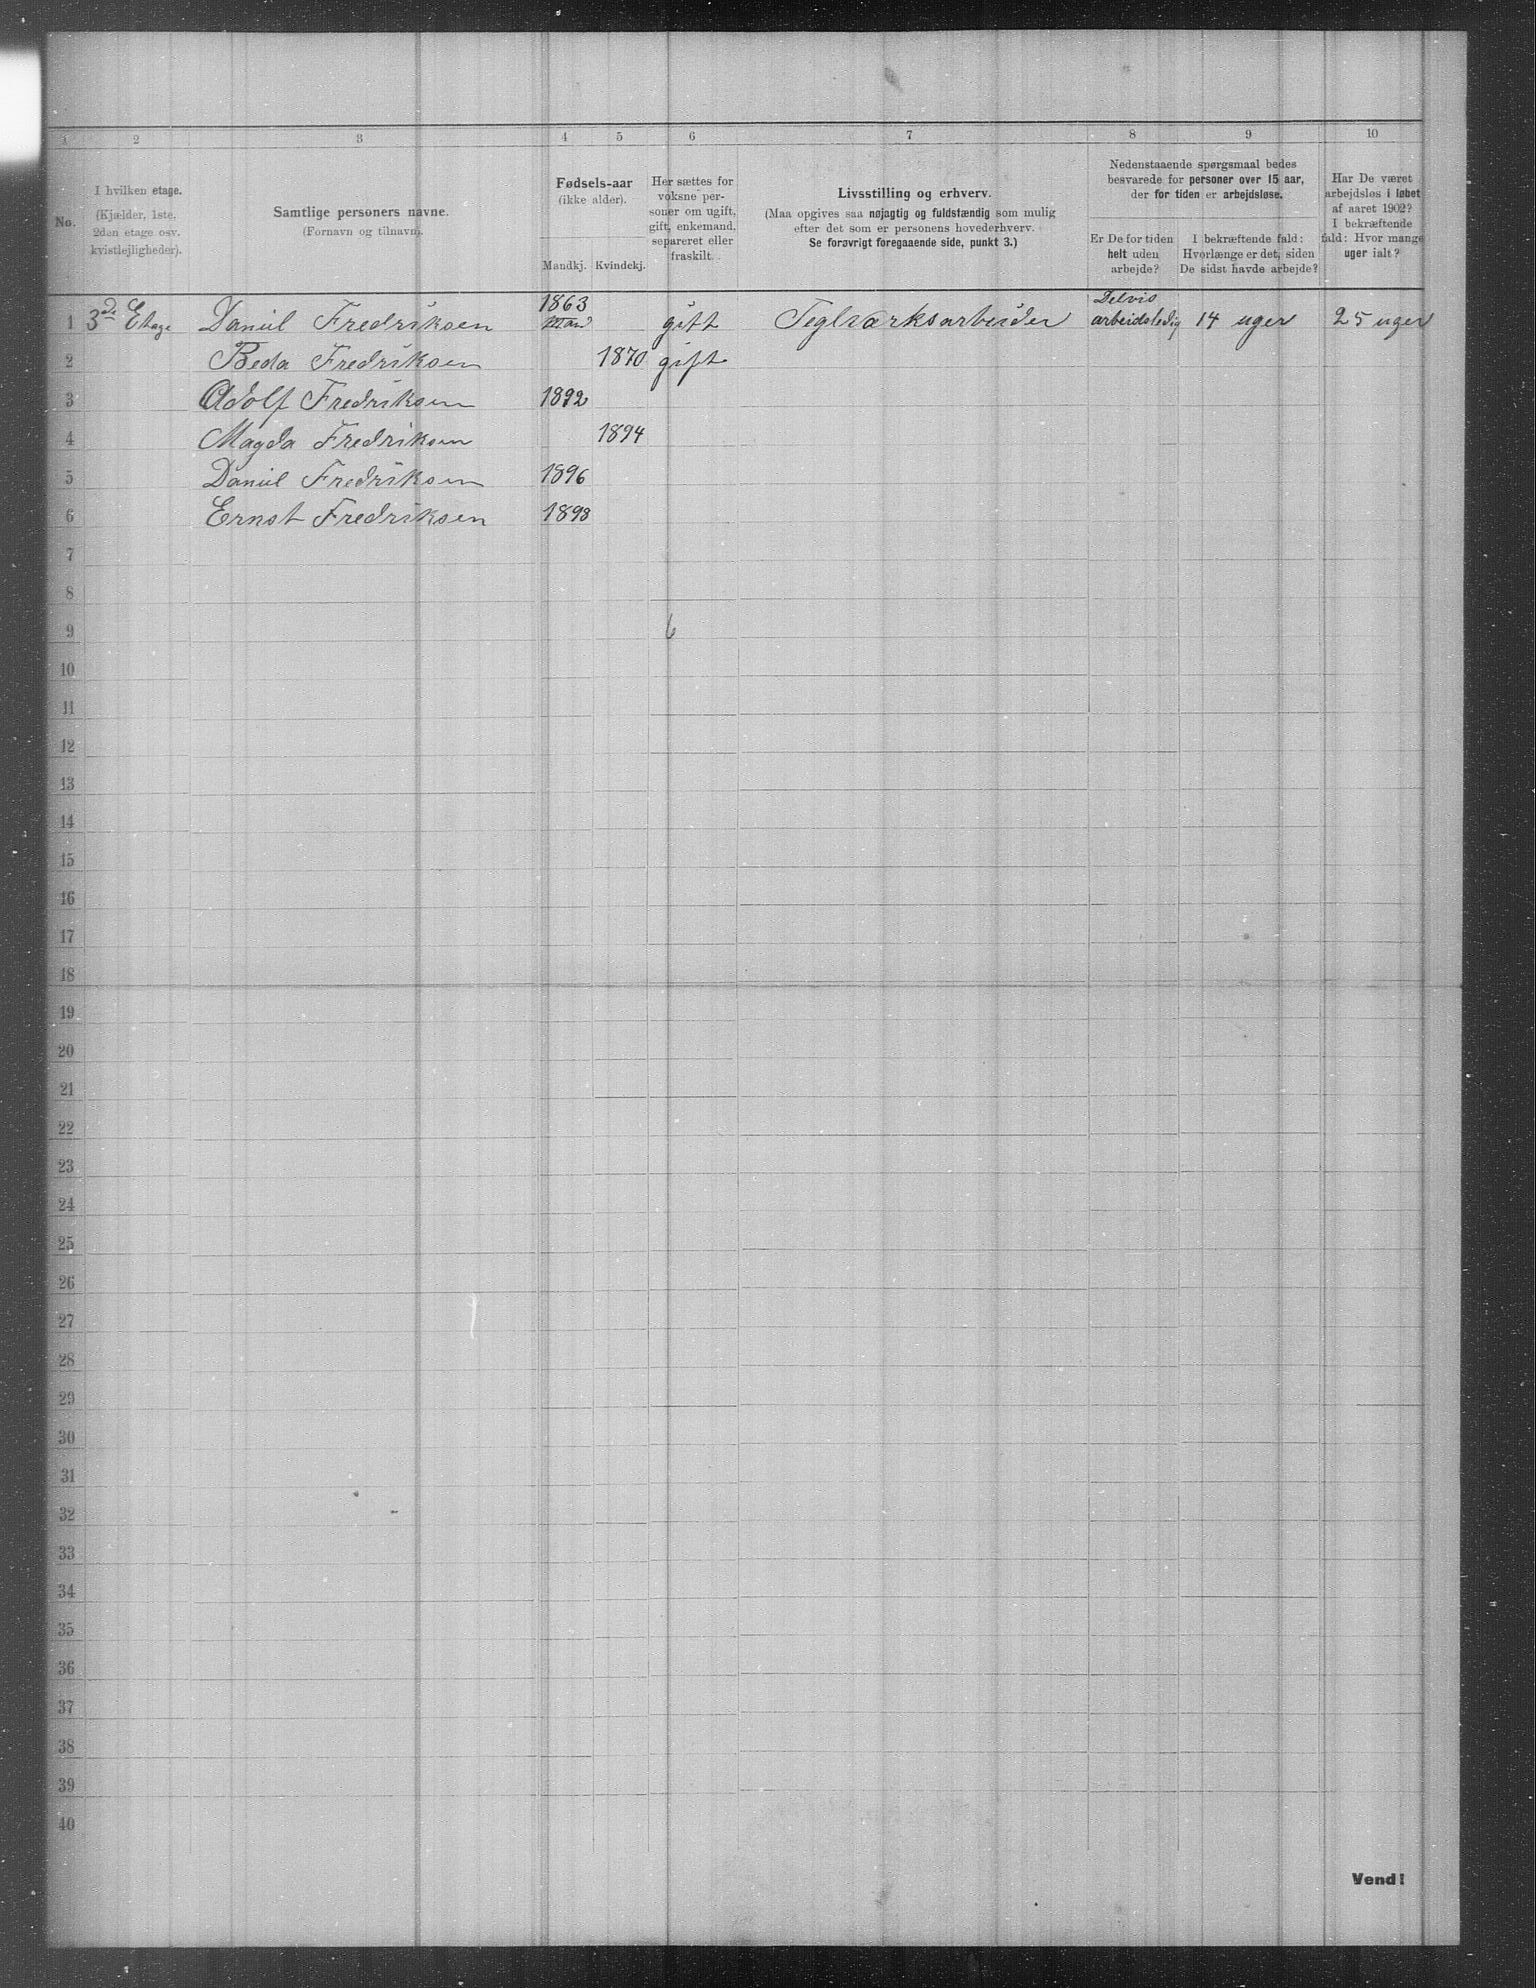 1 2 3 4 5 6 7 8 9 10
No.
I hvilken etage.
(Kjælder, 1ste,
2den etage osv.
kvistlejligheder).
Samtlige personers navne.
(Fornavn og tilnavn).
Fødsels-aar
(ikke alder).
Mandkj. Kvindekj.
Her sættes for
voksne per-
soner om ugift,
gift, enkemand,
separeret eller
fraskilt.
Livsstilling og erhverv.
(Maa opgives saa nøjagtig og fuldstændig som mulig
efter det som er personens hovederhverv.
Se forøvrigt foregaaende side, punkt 3.)
Nedenstaaende spørgsmaal bedes
besvarede for personer over 15 aar,
der for tiden er arbejdsløse.
Er De for tiden
helt uden
arbejde?
I bekræftende fald:
Hvorlænge er det, siden
De sidst havde arbejde?
Har De været
arbejdsløs i løbet
af aaret 1902?
I bekræftende
fald: Hvor mange
uger ialt?
1863 Delvis
1 3de Etage Daniel Fredriksen Mand gift Teglværksarbeider arbeidsledig 14 uger 25 uger
2 Beda Fredriksen 1870 gift
3 Adolf Fredriksen 1892
4 Magda Fredriksen 1894
5 Daniel Fredriksen 1896
6 Ernst Fredriksen 1898
7
8
9 6
10
11
12
13
14
15
16
17
18
19
20
21
22
23
24
25
26
27
28
29
30
31
32
33
34
35
36
37
38
39
40
Vend!